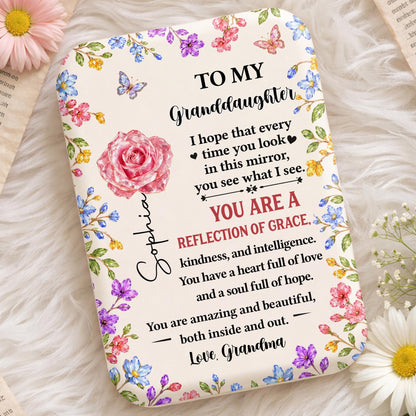 TO MY
Granddaughter
I hope that every
time you look
in this mirror,
you see what I see.
YOU ARE A
REFLECTION OF GRACE,
kindness, and intelligence.
You have a heart full of love
and a soul full of hope.
You are amazing and beautiful,
both inside and out.
Love, Grandma
Sophia